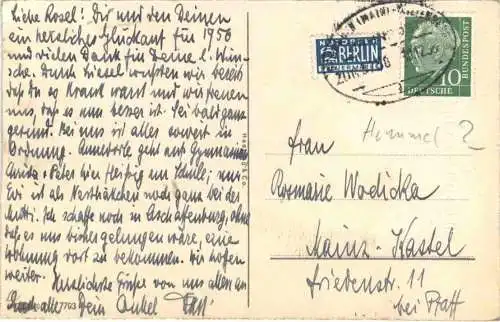 Liebe Rosel! Dir und den Deinen
ein herzliches Glückauf für 1956
und vielen Dank für Deine l. Wün-
sche. Durch Liesel wussten wir bereits
daß Du krank warst und wir freuen
uns, daß es nun besser ist. Sei bald ganz
gesund. Bei uns ist alles soweit in
Ordnung. Annemarie geht aufs Gymnasium
Peter fleißig zur Schule; nur
Evi ist als Nesthäkchen noch ganz bei der
Mutti. Ich schaffe noch in Aschaffenburg, ohne
daß es uns bisher gelungen wäre, eine
Wohnung dort zu bekommen. Wir hoffen
weiter. Herzlichste Grüße von uns allen an
Euch alle Dein Onkel
7793
NOTOPFER
2 BERLIN
STEUERMARKE
10
DEUTSCHE
BUNDESPOST
Hummel 2
Frau
Rosmarie Wodicka
Mainz-Kastel
Friedenstr. 11
bei Pfaff